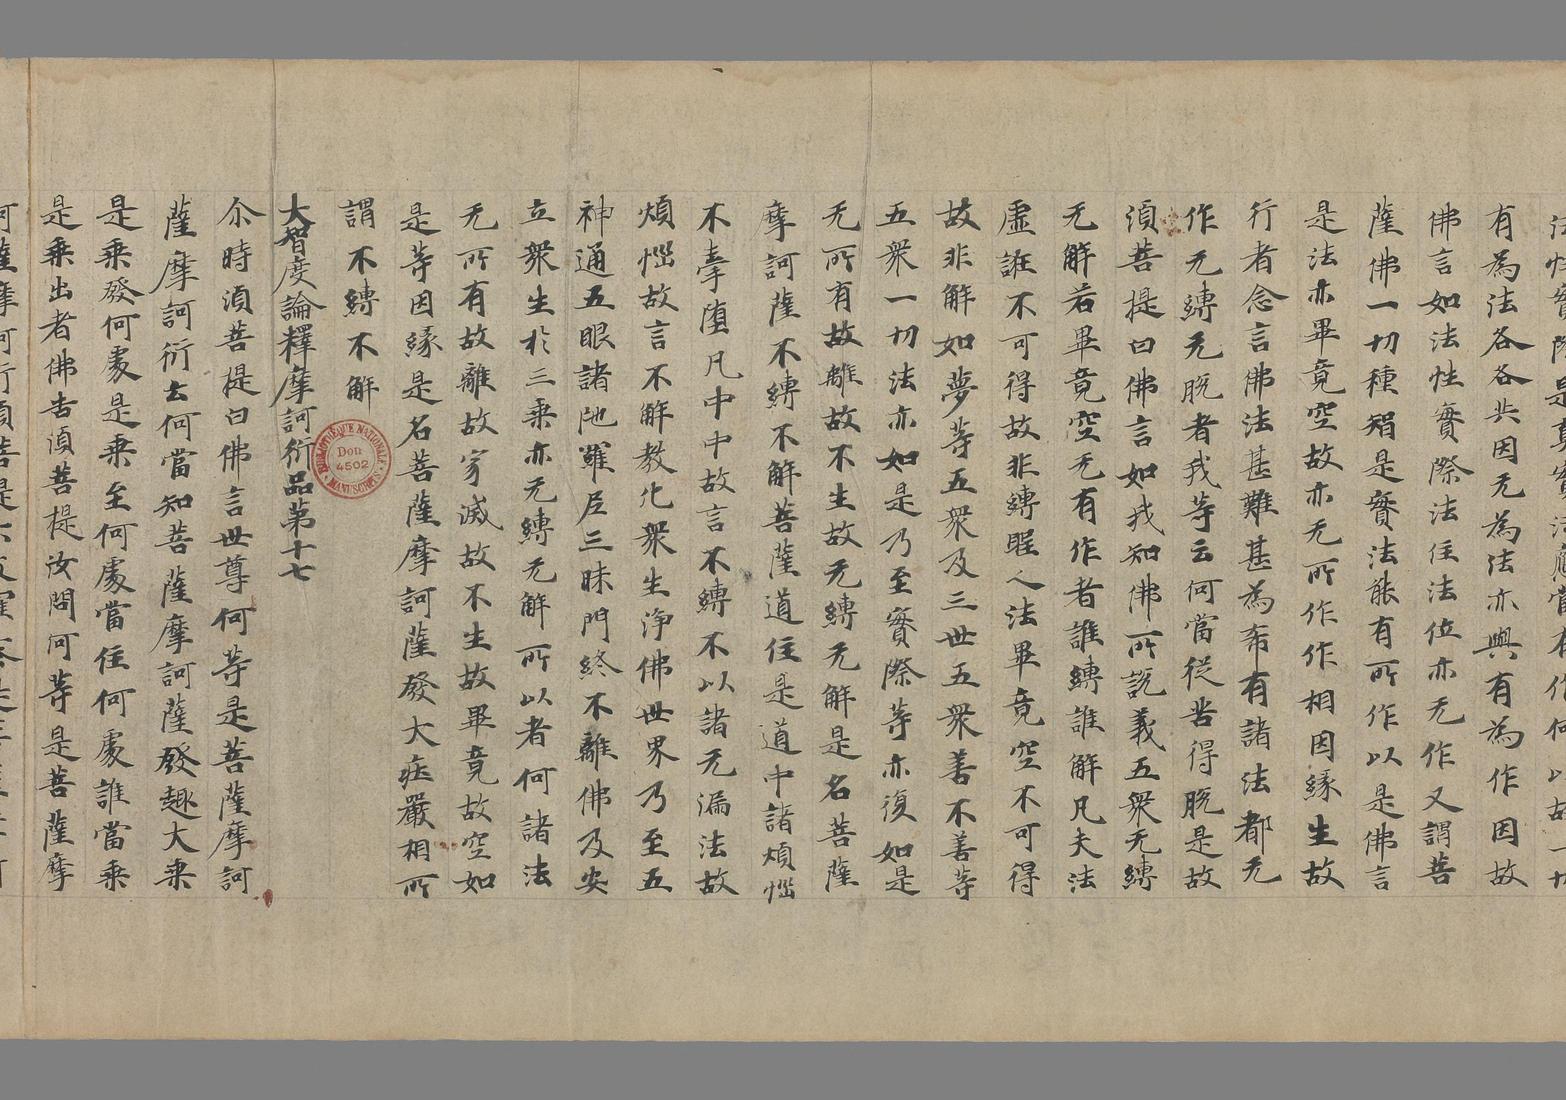 有為法各各共因无為法亦與有為作因故
佛言如法性實際法住法位亦无作又謂菩
薩佛一切種智是實法能有所作以是佛言
是法亦畢竟空故亦无所作作相因緣生故
行者念言佛法甚難甚為希有諸法都无
作无縛无脫者我等云何當從苦得脫是故
須菩提白佛言如我知佛所說義五衆无縛
无解若畢竟空无有作者誰縛誰解凡夫法
虛誑不可得故非縛聖人法畢竟空不可得
故非解如夢等五衆及三世五衆善不善等
五衆一切法亦如是乃至實際等亦復如是
无所有故離故不生故无縛无解是名菩薩
摩訶薩不縛不解菩薩道住是道中諸煩惱
不牽墮凡中中故言不縛不以諸无漏法故
煩惱故言不解教化衆生淨佛世界乃至五
神通五眼諸陁羅尼三昧門終不離佛及安
立衆生於三乘亦无縛无解所以者何諸法
无所有故離故寂滅故不生故畢竟故空如
是等因緣是名菩薩摩訶薩發大莊嚴相所
謂不縛不解
大智度論釋摩訶衍品第十七
尒時湏菩提白佛言世尊何等是菩薩摩訶
薩摩訶衍云何當知菩薩摩訶薩發趣大乘
是乘發何處是乘至何處當住何處誰當乘
是乘出者佛告湏菩提汝問何等是菩薩摩
BIBLIOTHÈQUE NATIONALE
Don 4502
MANUSCRITS